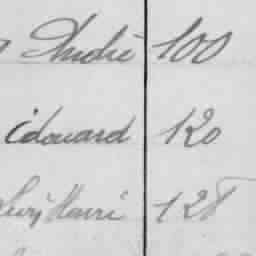 André 100
Edouard 120
Henri 128